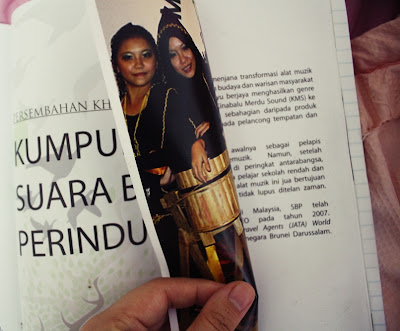 PERSEMBAHAN KH
KUMPU
SUARA B
PERINDU
menjana transformasi alat muzik
budaya dan warisan masyarakat
berjaya menghasilkan genre
Kinabalu Merdu Sound (KMS) ke
sebahagian daripada produk
pelancong tempatan dan
awalnya sebagai pelapis
muzik. Namun, setelah
di peringkat antarabangsa,
pelajar sekolah rendah dan
alat muzik ini jua bertujuan
tidak lupus ditelan zaman.
Malaysia, SBP telah
pada tahun 2007.
ravel Agents (JATA) World
negara Brunei Darussalam.